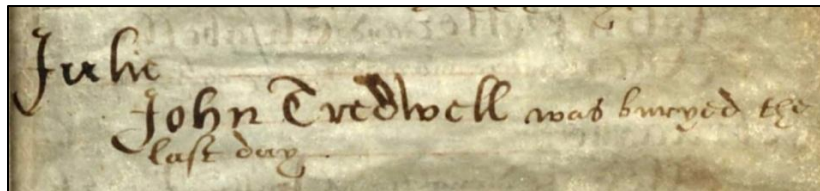 Julie
John Tredwell was buryed the
last day